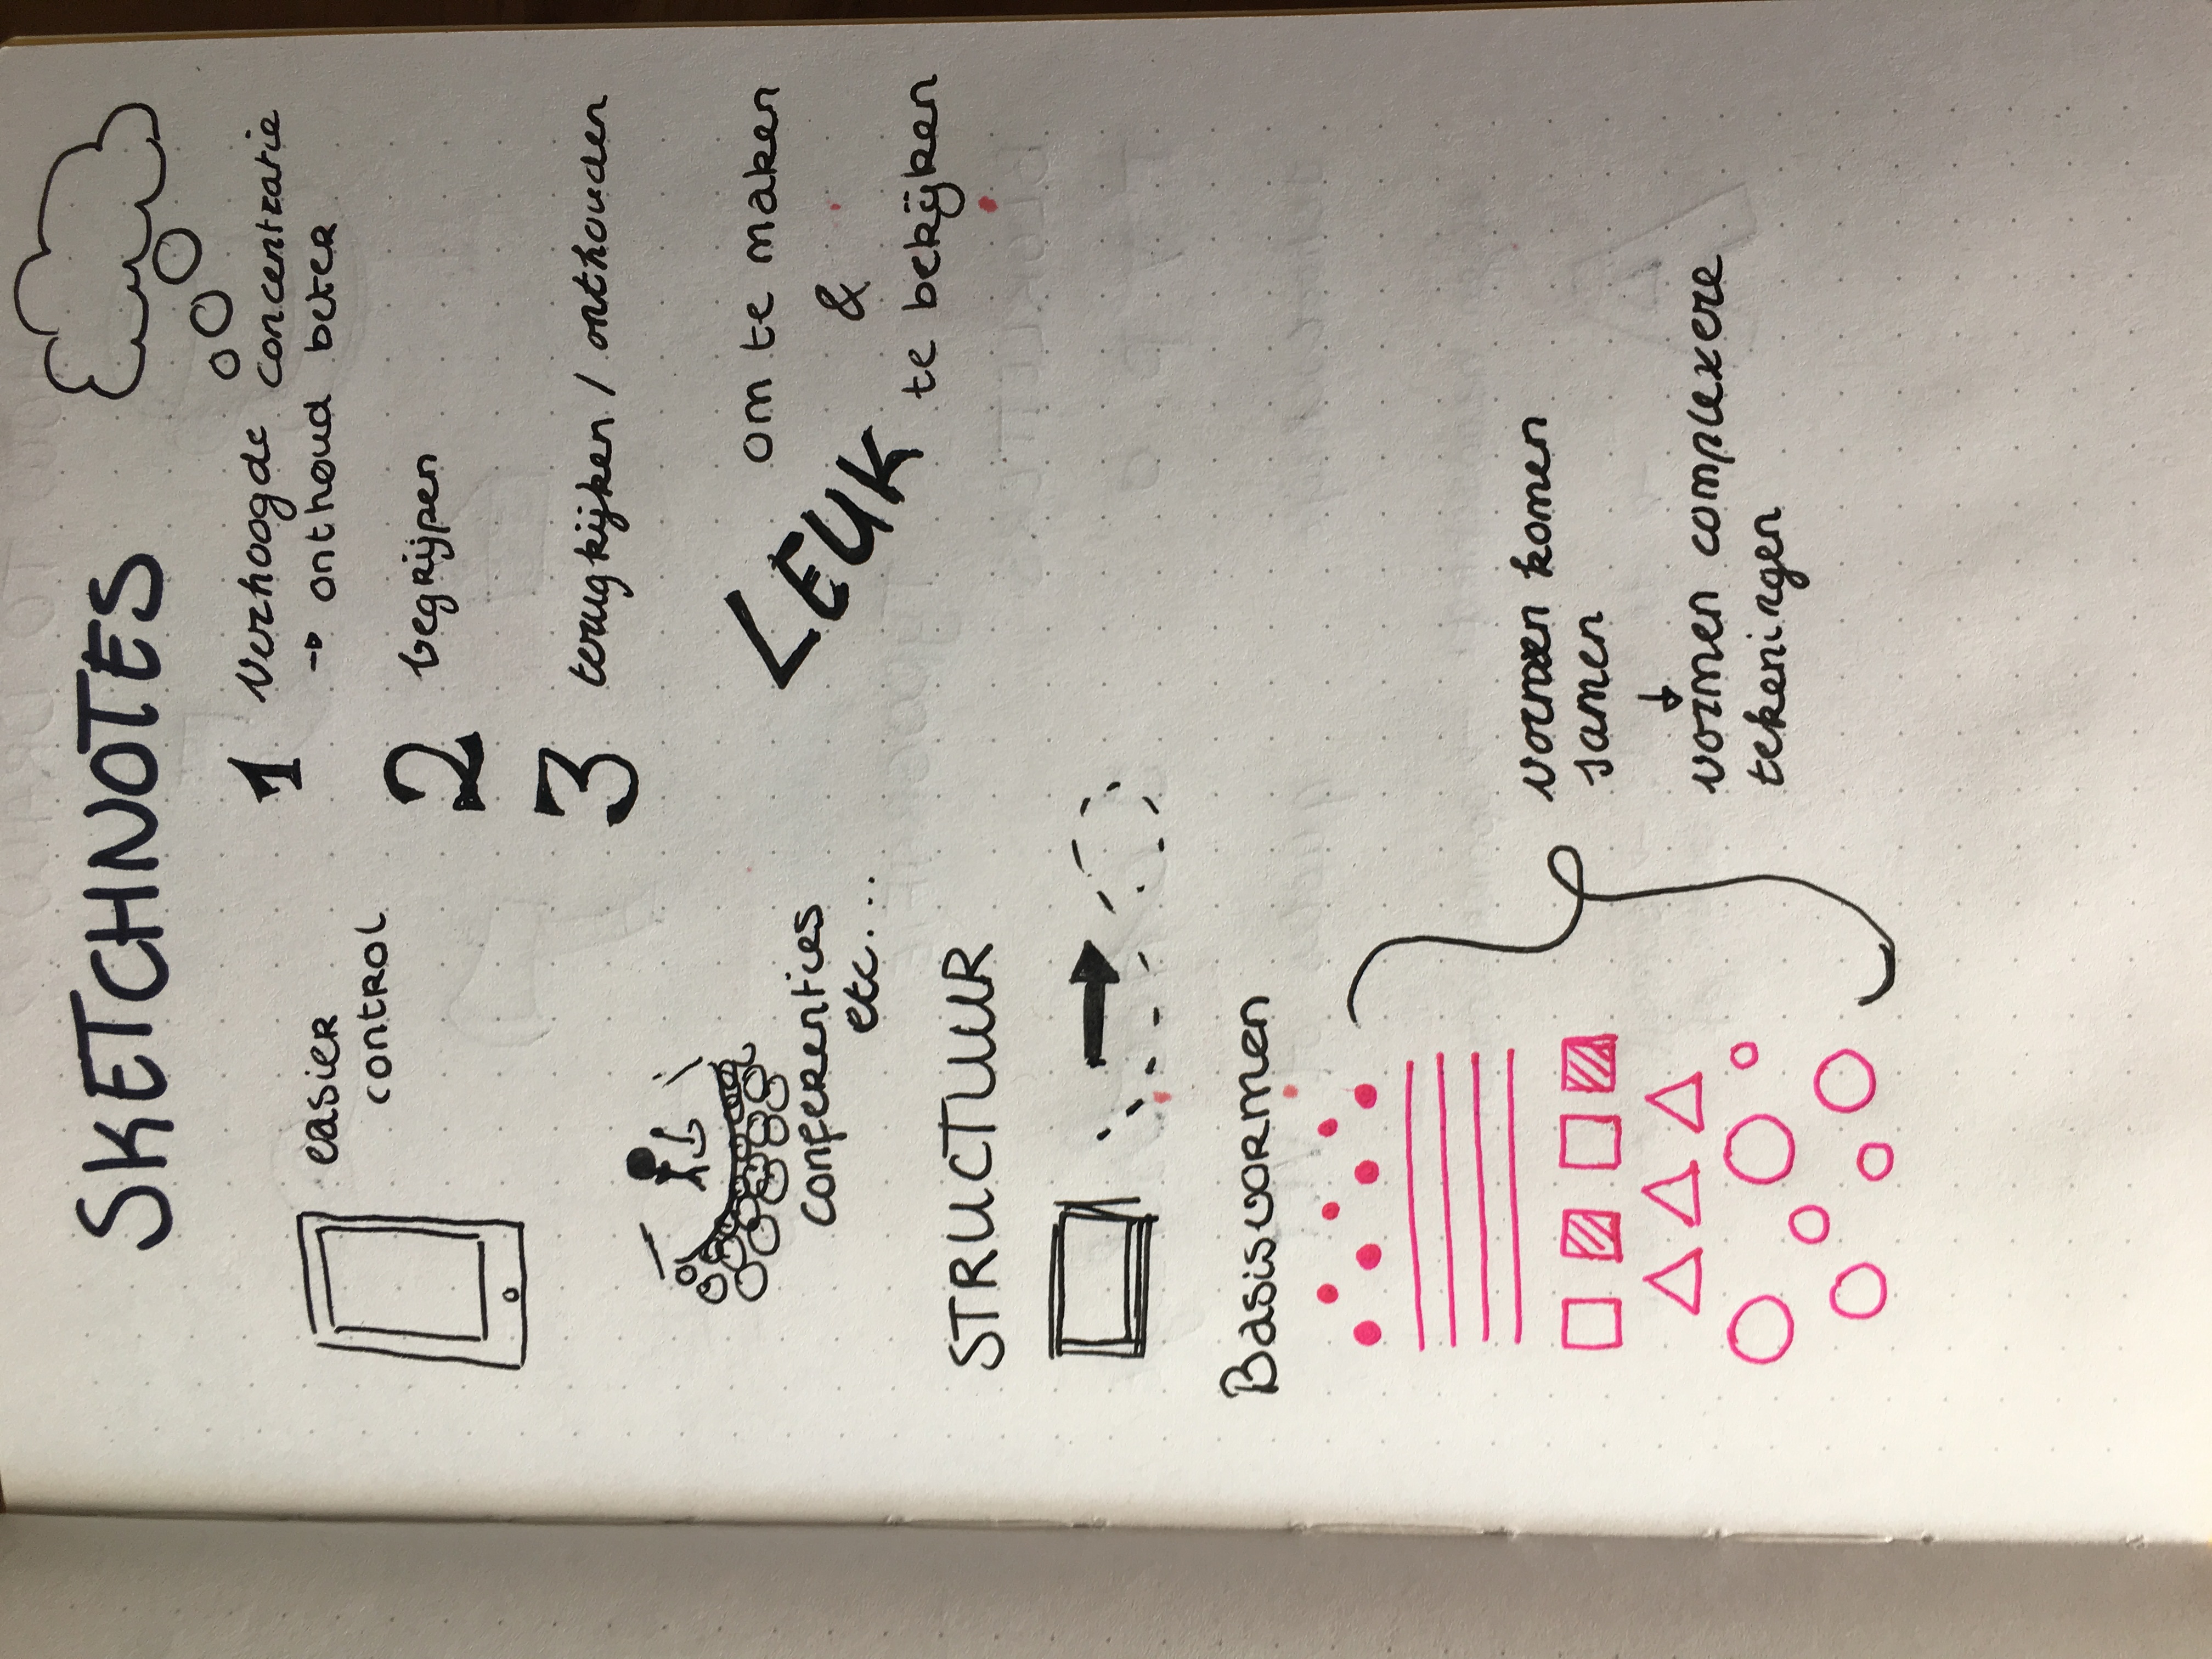 SKETCHNOTES
easier
control
1 Verhoogde concentratie
→ onthoud beter
2 begrijpen
3 terugkijken / onthouden
conferenties
etc...
LEUK
om te maken
&
te bekijken
STRUCTUUR
Basisvormen
vormen komen
samen
↓
vormen complexere
tekeningen